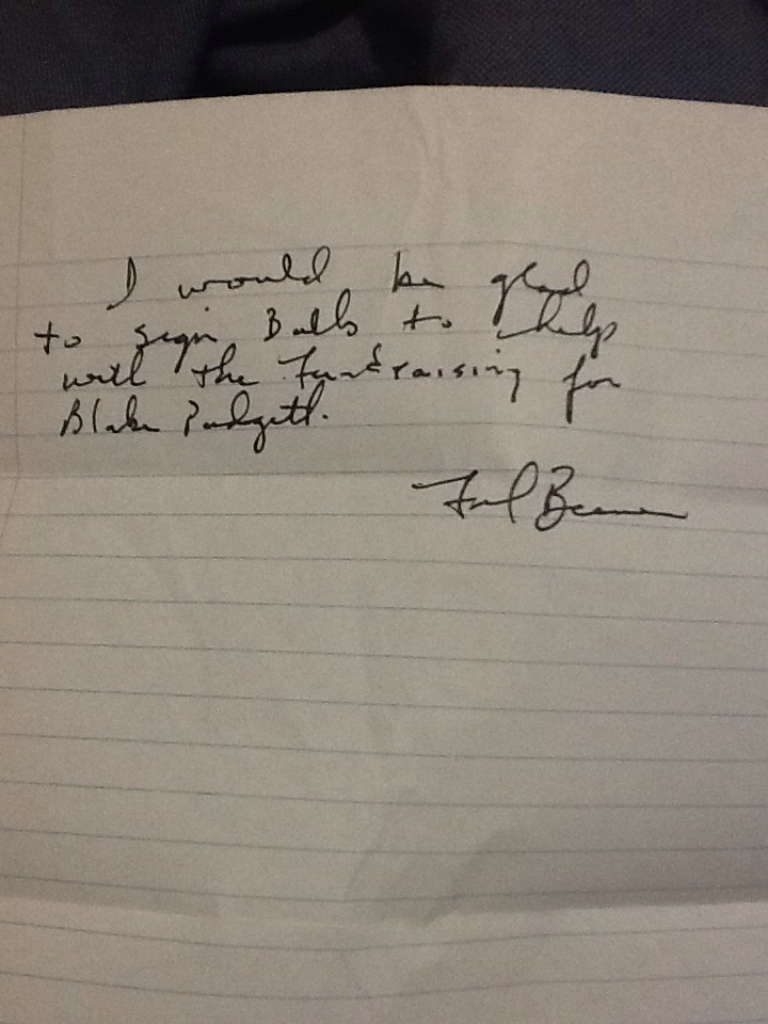 I would be glad
to sign Balls to help
with the Fundraising for
Blake Padgett.
Fred Beene